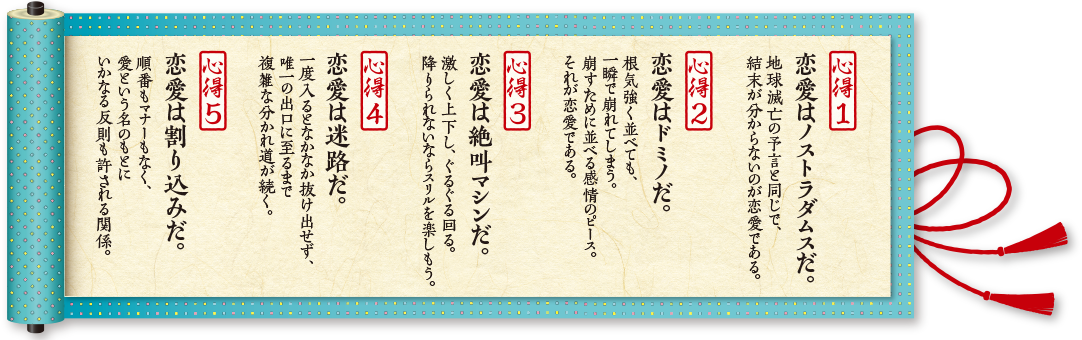 心得1
恋愛はノストラダムスだ。
地球滅亡の予言と同じで、
結末が分からないのが恋愛である。
心得2
恋愛はドミノだ。
根気強く並べても、
一瞬で崩れてしまう。
崩すために並べる感情のピース。
それが恋愛である。
心得3
恋愛は絶叫マシンだ。
激しく上下し、ぐるぐる回る。
降りられないならスリルを楽しもう。
心得4
恋愛は迷路だ。
一度入るとなかなか抜け出せず、
唯一の出口に至るまで
複雑な分かれ道が続く。
心得5
恋愛は割り込みだ。
順番もマナーもなく、
愛という名のもとに
いかなる反則も許される関係。